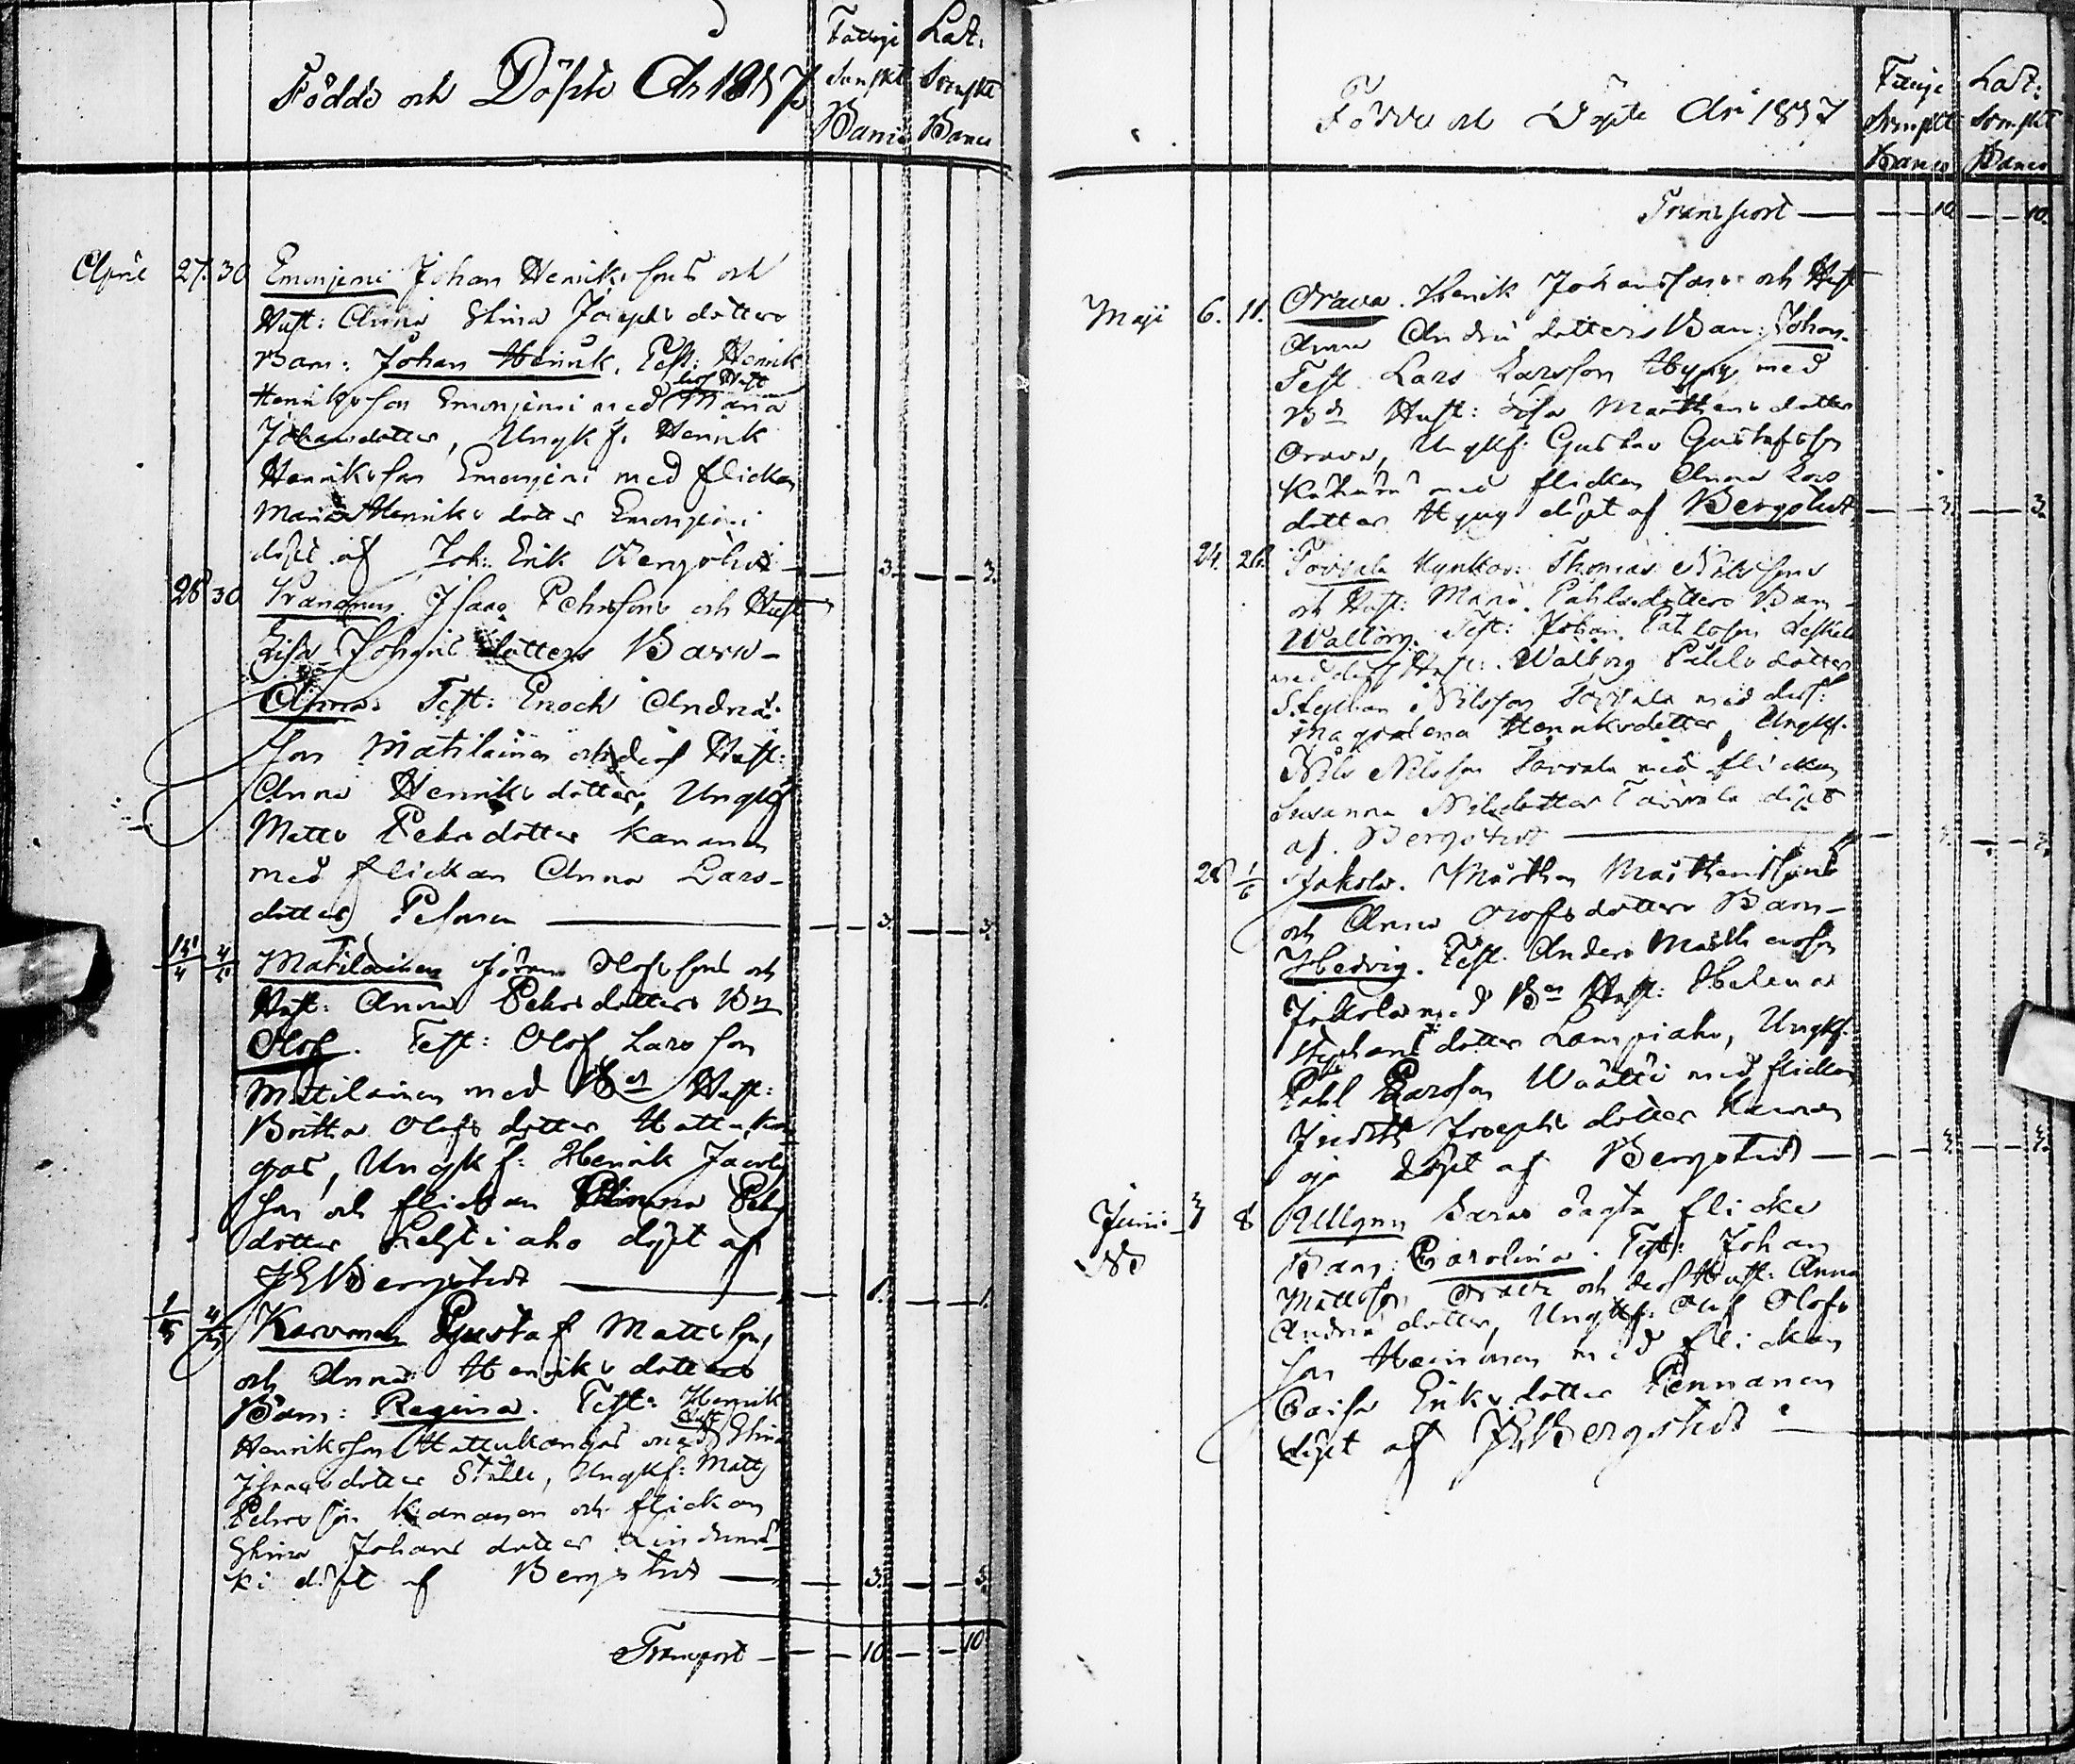 Födde och Döpte År 1817
Fattige Lat:
Banco Banco
April 27. 30 Emonjemi Johan Henrikssons och
Hust: Anna Stina Josephsdotters
Barn: Johan Henrik. Test: Henrik
dess Hust
Henriksson Emonjemi med Maria
Johansdotter, Ungk: Henrik
Henriksson Emonjemi med flickan
Maria Henriksdotter Emonjemi
döpt af Joh: Erik Bergstedt 3. 3.
28 30 Isaac Pehrssons och Hust
Lisa Johansdotters Barn
Anna. Test: Enoch Andræ
son Matilainen och dess Hust:
Anna Henriksdotter, Ungk
Matts Pehrsdotter Kananen
med flickan Anna Lars-
dotter Pesonen 3. 3.
Matilainen Jöran Olofssons och
Hust: Anna Pehrsdotters Bn
Olof. Test: Olof Larsson
Mattilainen med Bn Hust:
Britha Olofsdotter Hattukan
gas, Ungk: Henrik Jacobs
son och flickan Pehrs
dotter döpt af
JEBergstedt 1. 1.
Karvonen Gustaf Mattsson
och Anna Henriksdotters
Barn: Regina. Test: Henrik
Hust
Henriksson Hattukangas med Stina
Isaacsdotter Ståhle, Ungk: Matts
Pehrsson Kananen och flickan
Stina Johansdotter
ki döpt af Bergstedt 3. 3.
Transport 10 10
Födde och Döpte År 1817
Fattige Lat:
Banco Banco
Transport 10. 10.
Maji 6. 11. Orava. Henrik Johanssons och Hust
Anna Andræ dotters Barn: Johan.
Test. Lars Larsson Hyyry med
Bs Hust: Lisa Mårthensdotter
Orava, Ungk: Gustav Gustafsson
med flickan Anna Lars
dotter Hyyry döpt af Bergstedt 3. 3.
24. 26. Torvala Thomas Nilssons
och Hust: Maria Påhlsdotters Barn
Walborg. Test: Johan Påhlsson
med dess Hust: Walborg Påhlsdotter
Stephan Nilsson Torvala med dess:
Magdalena Henriksdotter, Ungk:
Nils Nilsson Torvala med flickan
Susanna Nilsdotter Torvala döpt
af Bergstedt
28 1/6 Jokela. Mårthen Mårthenssons
och Anna Olofsdotters Barn
Hedvig. Test. Anders Mårthensson
Jokela med Bs Hust: Helena
Stephansdotter Lampiaho, Ungk:
Påhl Larsson Wäätti med flickan
Judith Josephsdotter
oja döpt af Bergstedt
Junii 8 oägta flicke
Barn: Carolina. Test: Johan
Mattsson Orava och dess Hust: Anna
Andræ dotter, Ungk: Olof Olofs
son Heinonen med flickan
Caisa Eriksdotter Pennanen
döpt af JEBergstedt